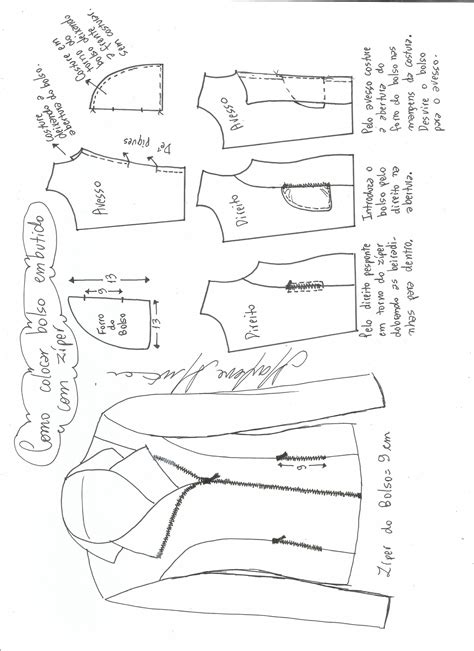 Como colocar bolso embutido
com zíper
Forro
do
Bolso
9
13
13
Avesso
Dê piques
Costure
deixando a
abertura do bolso.
Costure em
torno do
bolso deixando
a frente
sem costurar.
Marlene Mukai
9
Zíper do Bolso = 9 cm
Direito
Pelo direito pesponte
em torno do zíper
dobrando as beiradi-
nhas para dentro.
Direito
Introduza o
bolso pelo
direito na
abertura.
Avesso
Pelo avesso costure
a abertura do
forro do bolso nas
margens da costura.
Desvire o bolso
para o avesso.